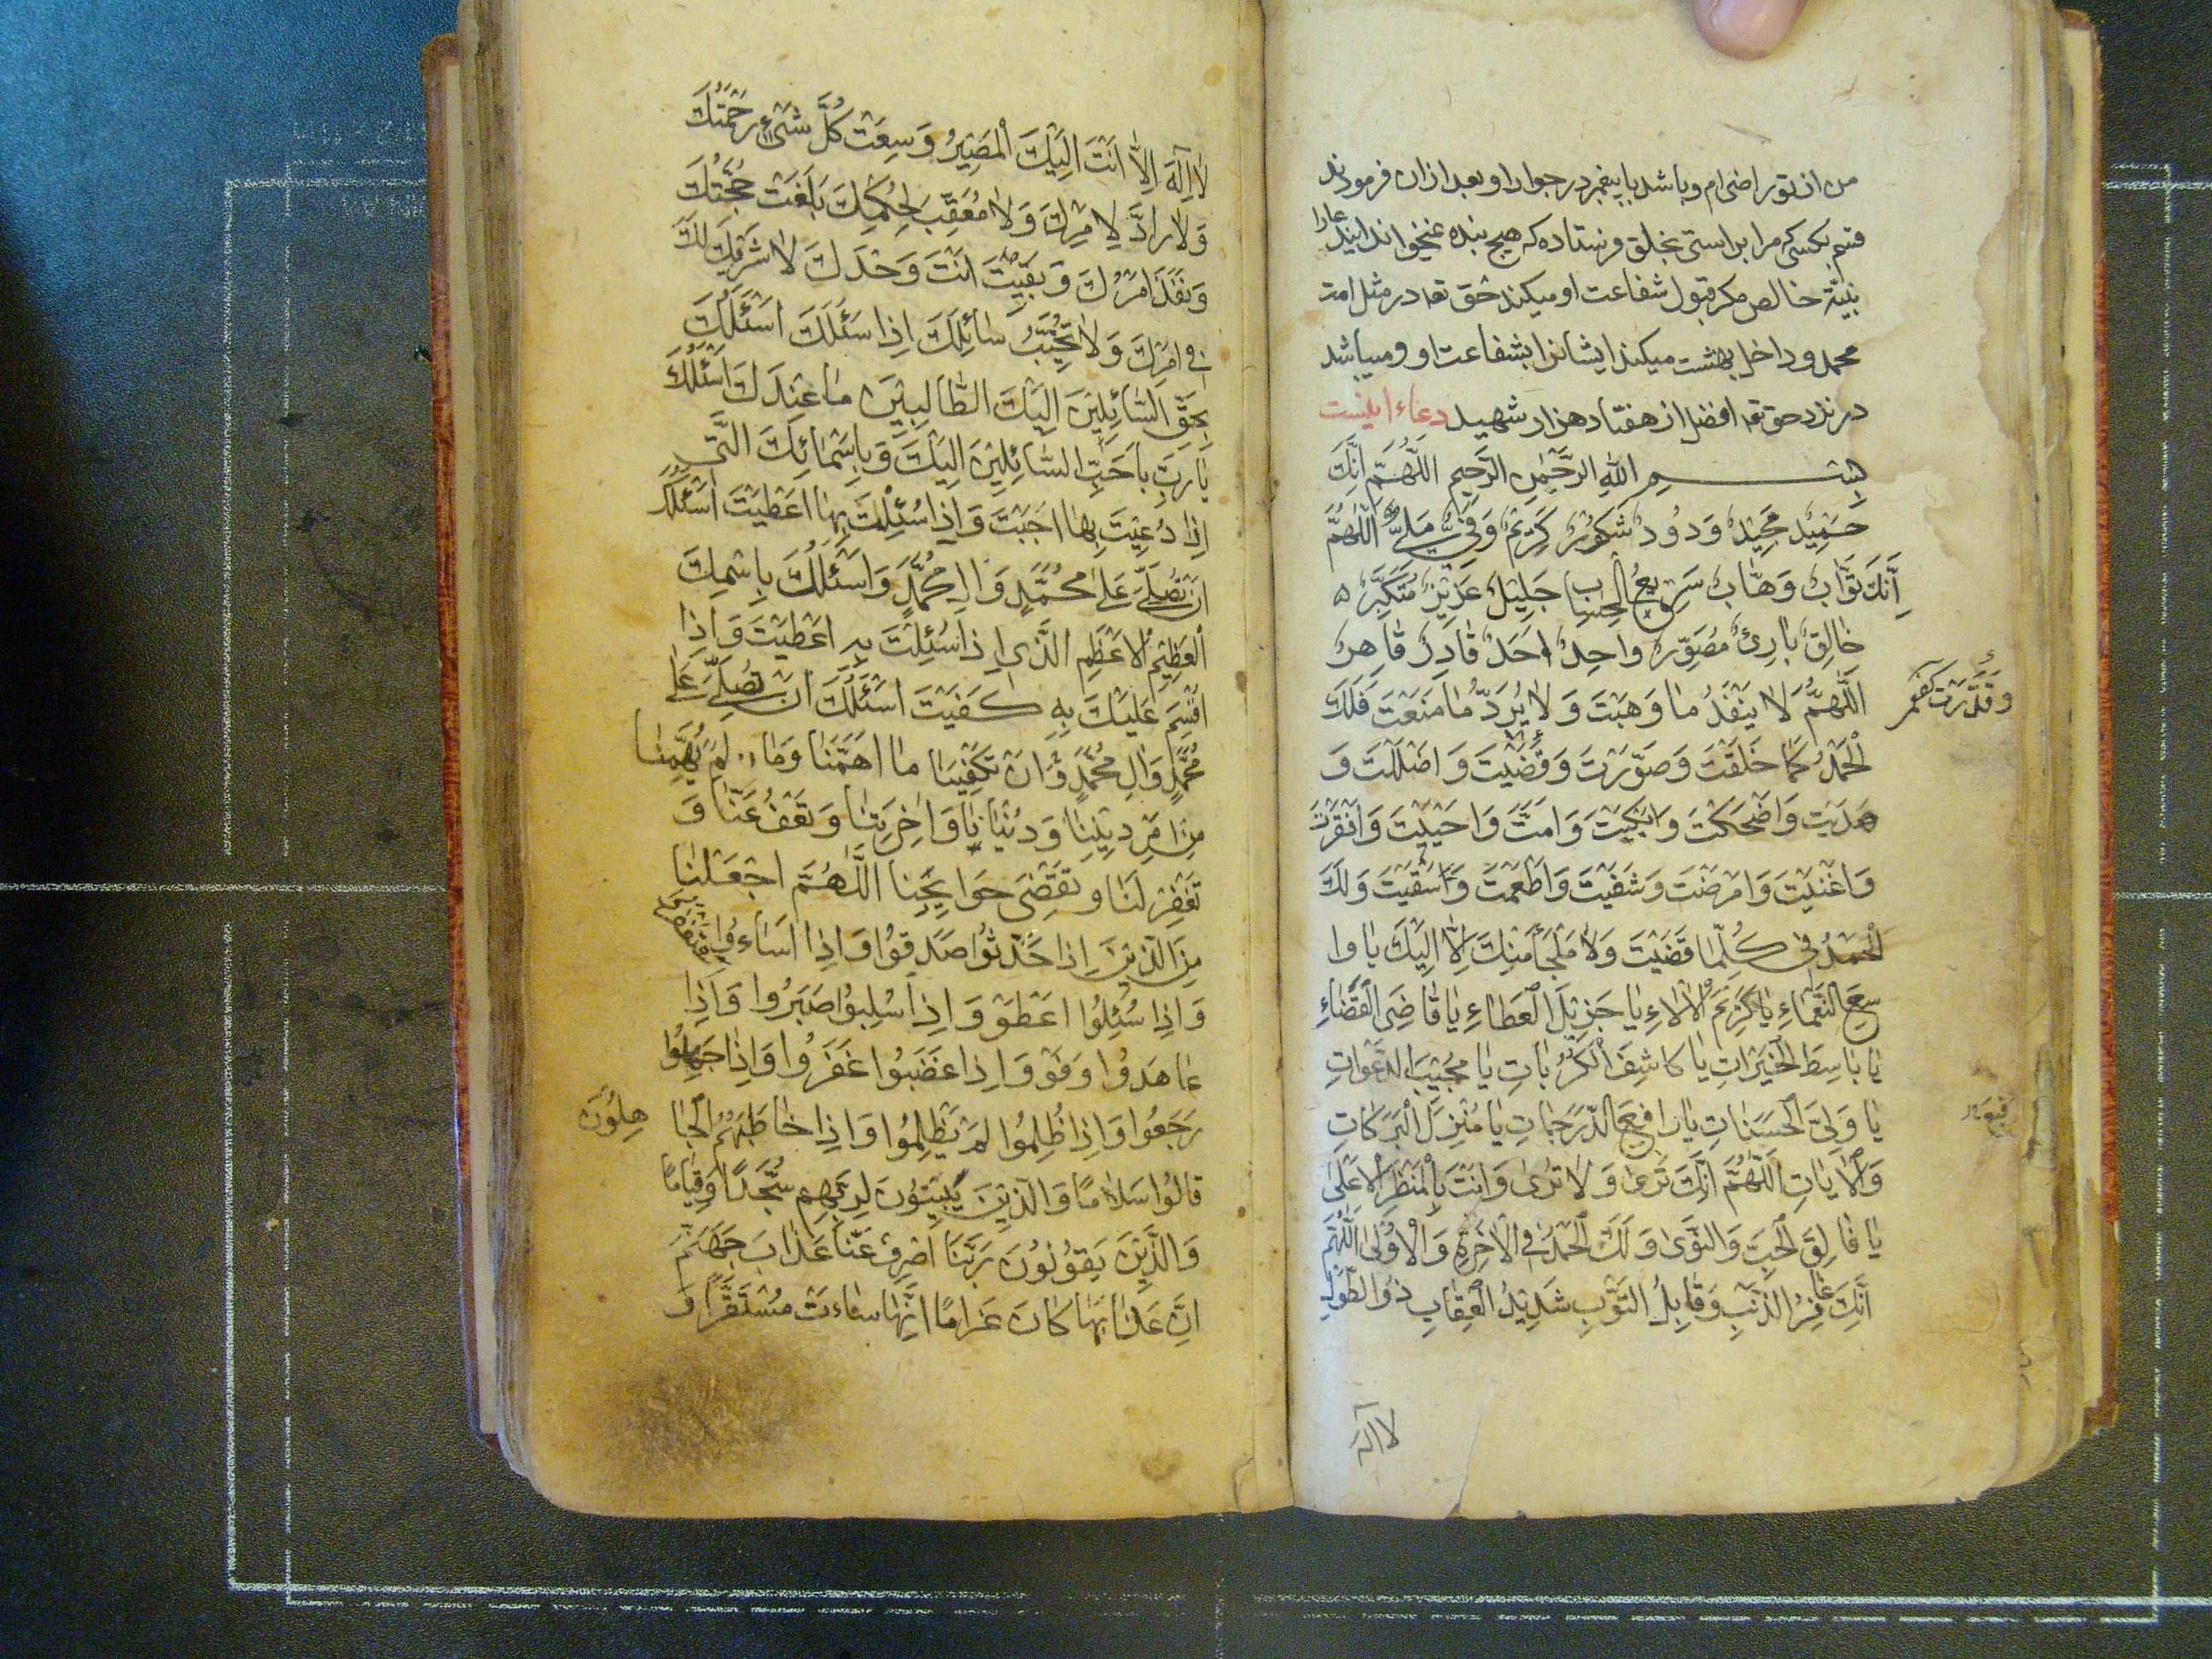 من از تو راضی ام و باشد با پیغمبر در جوار او بعد ازان فرمودند
قسم بکسی که مرا براستی بخلق فرستاده که هیچ بنده نمیخواند ایندعا را
بنیّة خالص مکر قبول شفاعت او میکند حق تعه در مثل امت
محمد و داخل بهشت میکند ایشانرا بشفاعت او و میباشد
در نزد حق تعه افضل از هفتاد هزار شهید دعاء اینست
بِسْمِ اللهِ الرَّحْمٰنِ الرَّحِيمِ اللَّهُمَّ اِنَّكَ
حَمِيْدٌ مَجِيْدٌ وَدُودٌ شَكُورٌ كَرِيمٌ وَفِيٌّ مَلِيٌّ اَللّٰهُمَّ
اِنَّكَ تَوَّابٌ وَهَّابٌ سَرِيعُ الْحِسَابِ جَلِيْلٌ عَزِيْزٌ مُتَكَبِّرٌ
خَالِقٌ بَارِئٌ مُصَوِّرٌ واحِدٌ اَحَدٌ قَادِرٌ قَاهِرٌ
اَللّٰهُمَّ لَا يَنْفَدُ مَا وَهَبْتَ وَلَا يُرَدُّ مَا مَنَعْتَ فَلَكَ
الْحَمْدُ كَمَا خَلَقْتَ وَصَوَّرْتَ وَقَضَيْتَ وَاضْلَلْتَ وَ
هَدَيْتَ وَاَضْحَكْتَ وَابْكَيْتَ وَاَمَتَّ وَاحْيَيْتَ وَافْقَرْتَ
وَاغْنَيْتَ وَامْرَضْتَ وَشَفَيْتَ وَاَطْعَمْتَ وَاَسْقَيْتَ وَلَكَ
الْحَمْدُ فِي كُلِّمَا قَضَيْتَ وَلَا مَلْجَأَ مِنْكَ اِلَّا اِلَيْكَ يَا وا
سِعَ النَّعْمَاءِ يَا كَرِيمَ الْاٰلَاءِ يَا جَزِيْلَ الْعَطَاءِ يَا قَاضِيَ الْقَضَاءِ
يَا بَاسِطَ الْخَيْرَاتِ يَا كَاشِفَ الْكُرُبَاتِ يَا مُجِيْبَ الدَّعَوَاتِ
يَا وَلِيَّ الْحَسَنَاتِ يَا رَافِعَ الدَّرَجَاتِ يَا مُنْزِلَ الْبَرَكَاتِ
وَالْاٰيَاتِ اَللّٰهُمَّ اِنَّكَ تَرٰى وَلَا تُرٰى وَاَنْتَ بِالْمَنْظَرِ الْاَعْلٰى
يَا فَالِقَ الْحَبِّ وَالنَّوٰى وَلَكَ الْحَمْدُ فِي الْاٰخِرَةِ وَالْاُوْلٰى اَللّٰهُمَّ
اِنَّكَ غَافِرُ الذَّنْبِ وَقَابِلُ التَّوْبِ شَدِيْدُ الْعِقَابِ ذُوالطَّوْلِ
لا اله
لَا اِلٰهَ اِلَّا اَنْتَ اِلَيْكَ الْمَصِيْرُ وَسِعَتْ كُلَّ شَيْءٍ رَحْمَتُكَ
وَلَا رَادَّ لِاَمْرِكَ وَلَا مُعَقِّبَ لِحُكْمِكَ بَلَغَتْ حُجَّتُكَ
وَنَفَذَ اَمْرُكَ وَبَقِيْتَ اَنْتَ وَحْدَكَ لَا شَرِيْكَ لَكَ
فِي اَمْرِكَ وَلَا تُخَيِّبُ سَائِلَكَ اِذَا سَئَلَكَ اَسْئَلُكَ
بِحَقِّ السَّائِلِيْنَ اِلَيْكَ الطَّالِبِيْنَ مَا عِنْدَكَ اَسْئَلُكَ
يَا رَبِّ بِاَحَبِّ السَّائِلِيْنَ اِلَيْكَ وَبِاَسْمَائِكَ الَّتِي
اِذَا دُعِيْتَ بِهَا اَجَبْتَ وَاِذَا سُئِلْتَ بِهَا اَعْطَيْتَ اَسْئَلُكَ
اَنْ تُصَلِّيَ عَلٰى مُحَمَّدٍ وَاٰلِ مُحَمَّدٍ وَاَسْئَلُكَ بِاسْمِكَ
الْعَظِيْمِ الْاَعْظَمِ الَّذِي اِذَا سُئِلْتَ بِهِ اَعْطَيْتَ وَاِذَا
اُقْسِمَ عَلَيْكَ بِهِ كَفَيْتَ اَسْئَلُكَ اَنْ تُصَلِّيَ عَلٰى
مُحَمَّدٍ وَاٰلِ مُحَمَّدٍ وَاَنْ تَكْفِيَنَا مَا اَهَمَّنَا وَمَا لَمْ يُهِمَّنَا
مِنْ اَمْرِ دِيْنِنَا وَدُنْيَانَا وَاٰخِرَتِنَا وَتَعْفُ عَنَّا وَ
تَغْفِرْ لَنَا وَتَقْضِيَ حَوَايِجَنَا اَللّٰهُمَّ اجْعَلْنَا
مِنَ الَّذِيْنَ اِذَا حَدَّثُوا صَدَقُوا وَاِذَا اَسَاءُوا
وَاِذَا سُئِلُوا اَعْطَوْ وَاِذَا سُلِبُوا صَبَرُوا وَاِذَا
عَاهَدُوا وَفَوْ وَاِذَا غَضَبُوا غَفَرُوا وَاِذَا جَهِلُوا
رَجَعُوا وَاِذَا ظُلِمُوا لَمْ يَظْلِمُوا وَاِذَا خَاطَبَهُمُ الْجَا هِلُوْنَ
قَالُوا سَلَامًا وَالَّذِيْنَ يَبِيْتُوْنَ لِرَبِّهِمْ سُجَّدًا وَقِيَامًا
وَالَّذِيْنَ يَقُوْلُوْنَ رَبَّنَا اصْرِفْ عَنَّا عَذَابَ جَهَنَّمَ
اِنَّ عَذَابَهَا كَانَ غَرَامًا اِنَّهَا سَاءَتْ مُسْتَقَرًّا وَ